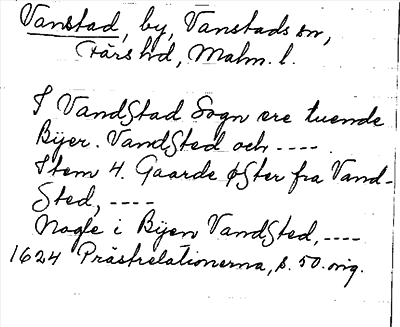 Vanstad, by, Vanstads sn,
Färs hd, Malm. l.
I VandStad Sogn ere tuende
Byer. VandSted och ----.
Item 4. Gaarde øster fra Vand-
Sted, ----
Nogle i Byen VandSted, ----
1624 Prästrelationerna, s. 50. orig.